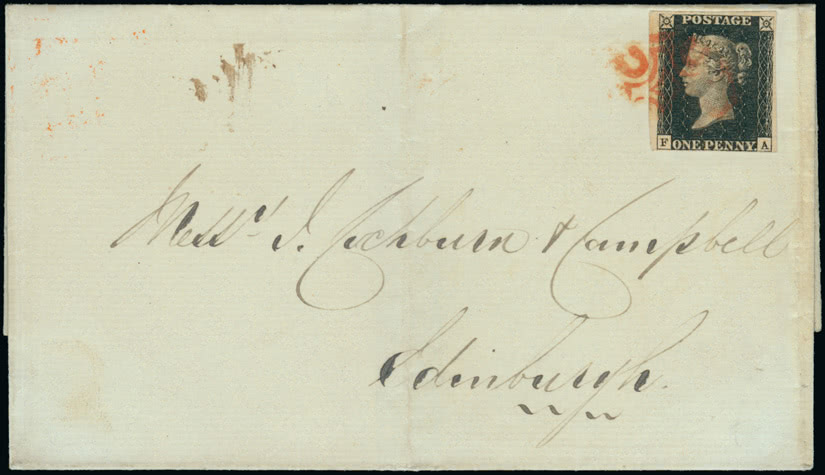 POSTAGE
F ONE PENNY A
Messrs J. Cockburn & Campbell
Edinburgh.